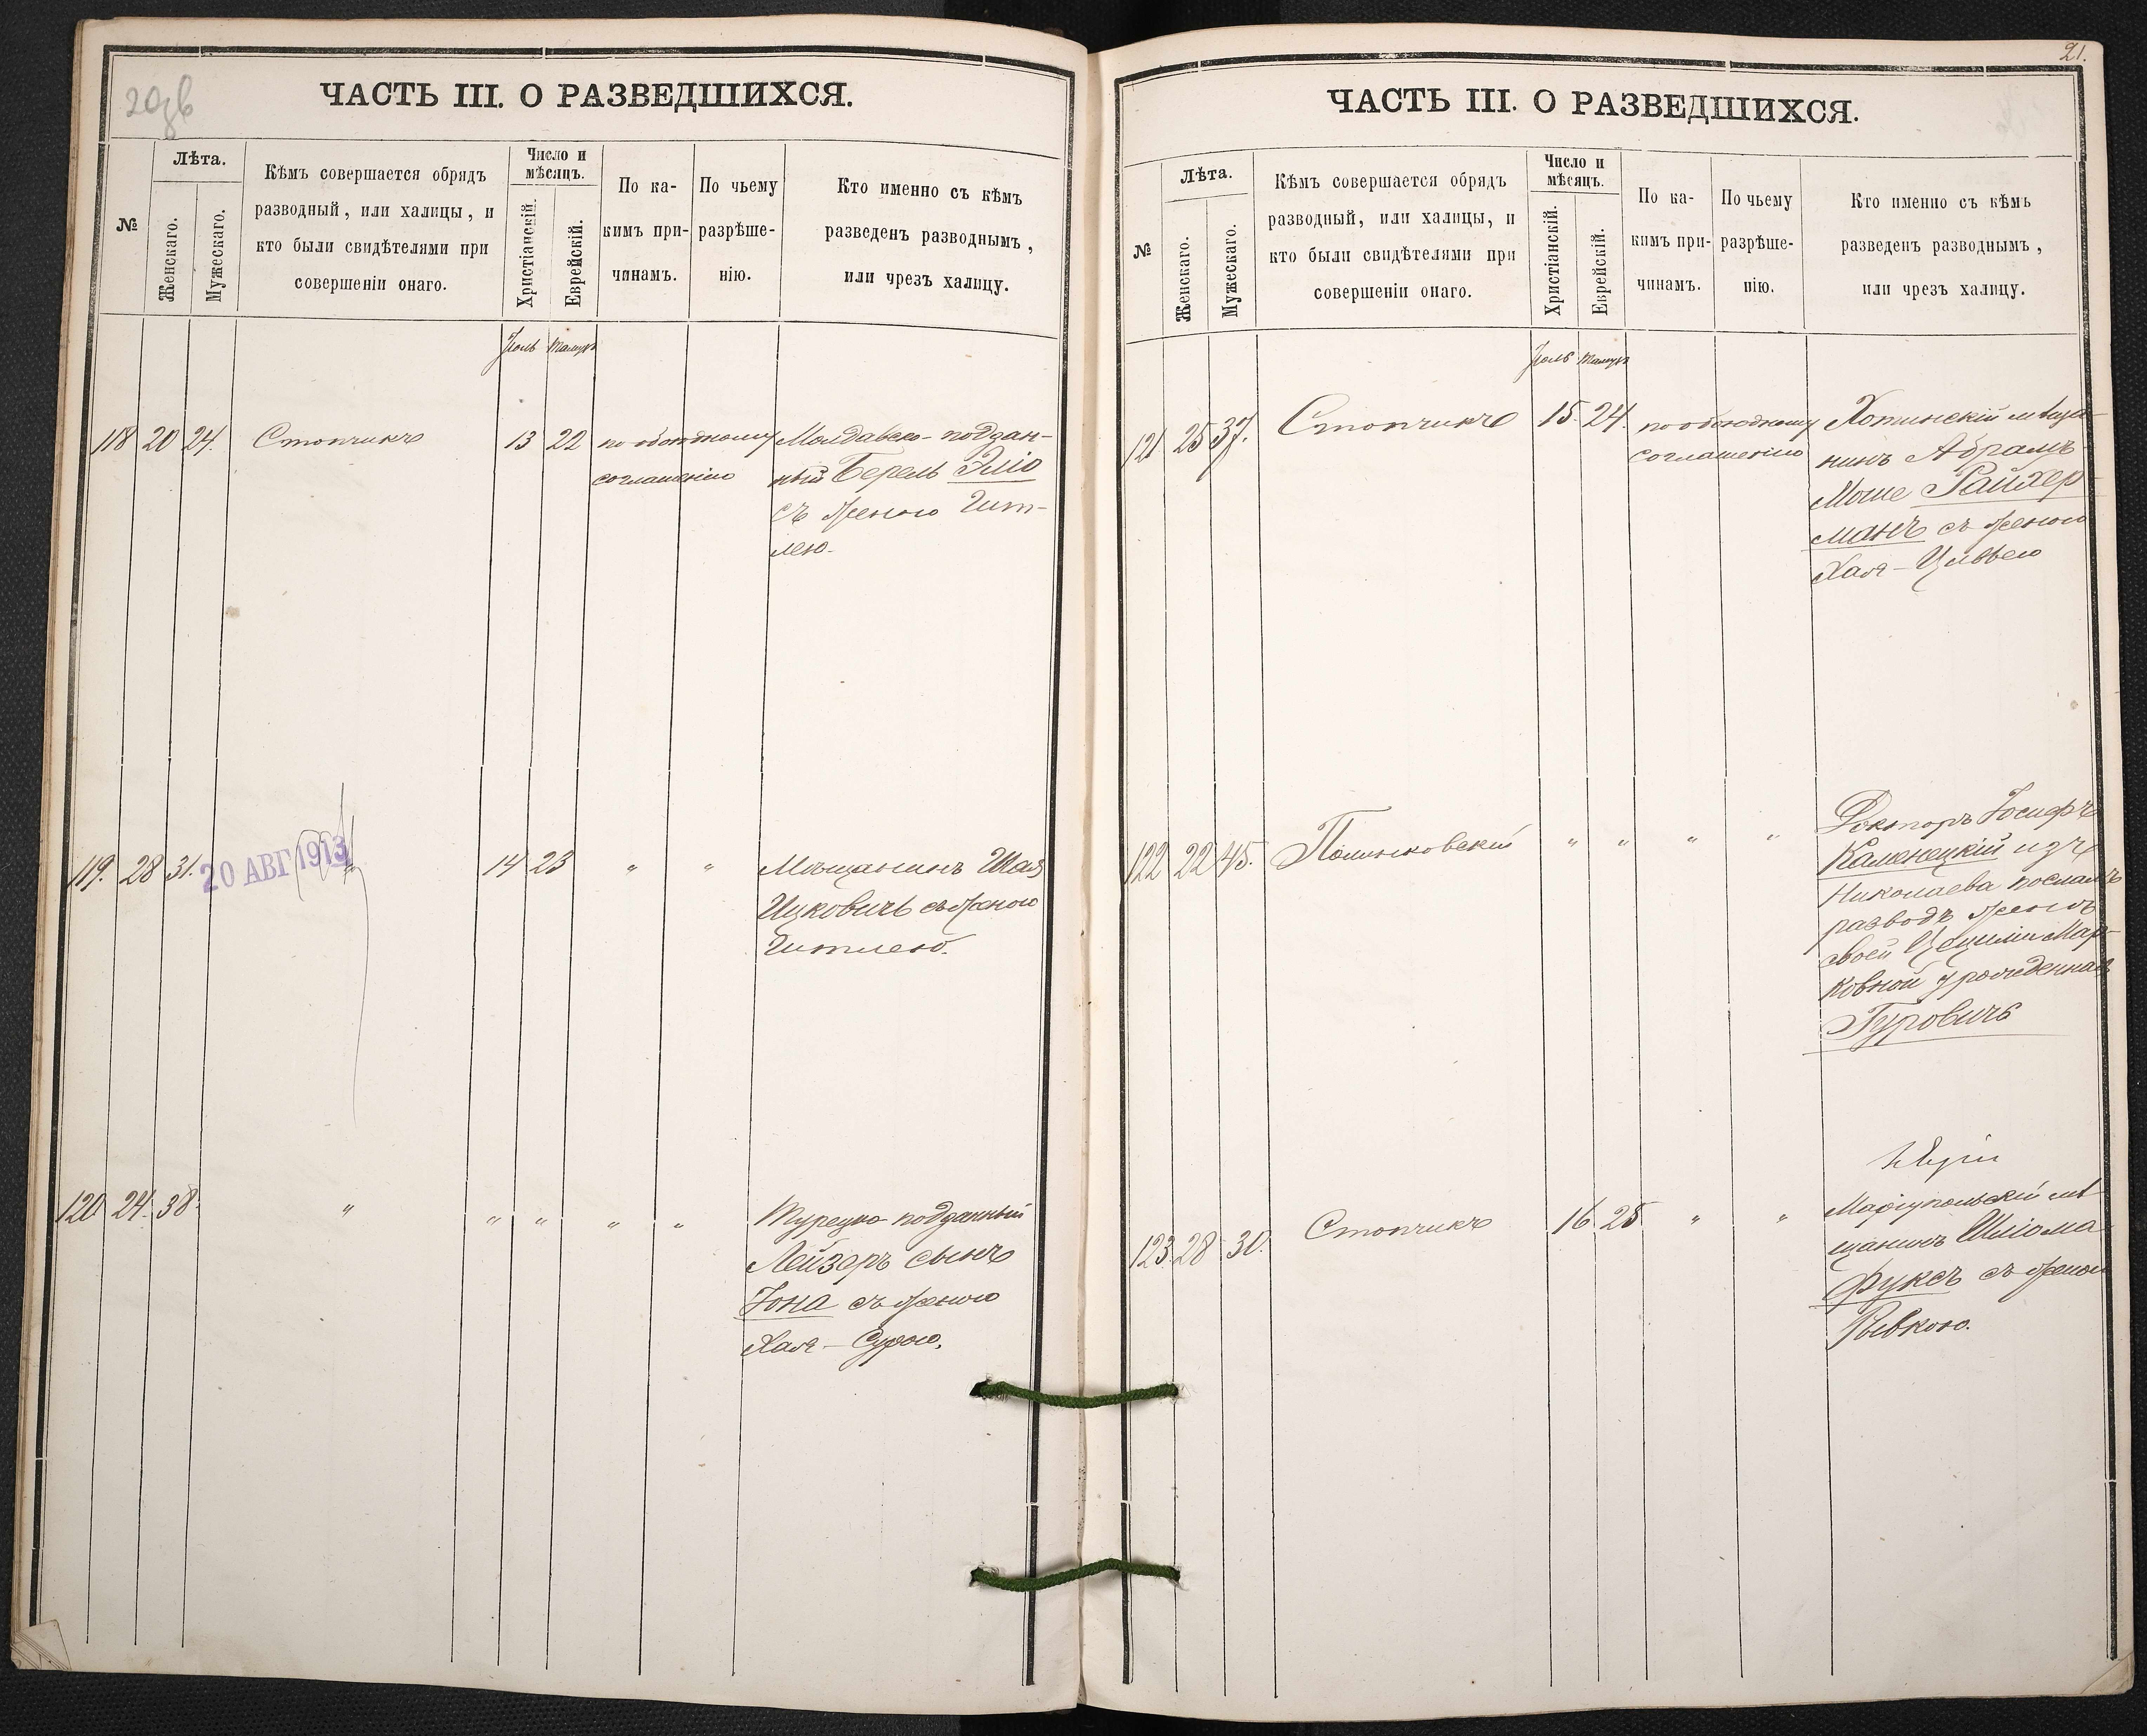 20зв
ЧАСТЬ III. О РАЗВЕДШИХСЯ.
№
Лѣта.
Женскаго.
Мужескаго.
Кѣмъ совершается обрядъ
разводный, или халицы, и
кто были свидѣтелями при
совершеніи онаго.
Число и
мѣсяцъ.
Христіанскій.
Еврейскій.
По ка-
кимъ при-
чинамъ.
По чьему
разрѣше-
нію.
Кто именно съ кѣмъ
разведенъ разводнымъ,
или чрезъ халицу.
Іюль Тамузъ
118 20 24. Стопчикъ 13 22 по обоюдному Молдавско-поддан-
соглашенію ный Берель Эліо
съ женою Гит-
лею.
119. 28 31. " 14 23 " " Мѣщанинъ Шая
20 АВГ 1913
Ицковичъ съ женою
Гитлею.
120 24. 38. " " " " " Турецко подданный
Лейзеръ сынъ
Іона съ женою
Хая-Сурою.
21.
ЧАСТЬ III. О РАЗВЕДШИХСЯ.
№
Лѣта.
Женскаго.
Мужескаго.
Кѣмъ совершается обрядъ
разводный, или халицы, и
кто были свидѣтелями при
совершеніи онаго.
Число и
мѣсяцъ.
Христіанскій.
Еврейскій.
По ка-
кимъ при-
чинамъ.
По чьему
разрѣше-
нію.
Кто именно съ кѣмъ
разведенъ разводнымъ,
или чрезъ халицу.
Іюль Тамузъ
121 25 37. Стопчикъ 15. 24. по обоюдному Хотинскій мѣща-
соглашенію нинъ Абрамъ
Моше Райхер
манъ съ женою
Хая-Цивьею
122 22 45. Полинковскій " " " " Докторъ Іосифъ
Каменецкій изъ
Николаева послалъ
разводъ женѣ
своей Цециліи Мар-
ковной урожденная
Гуровичъ
123. 28 30. Стопчикъ 16 25 " " Маріупольскій мѣ
щанинъ Шліома
Фуксъ съ женою
Рывкою.